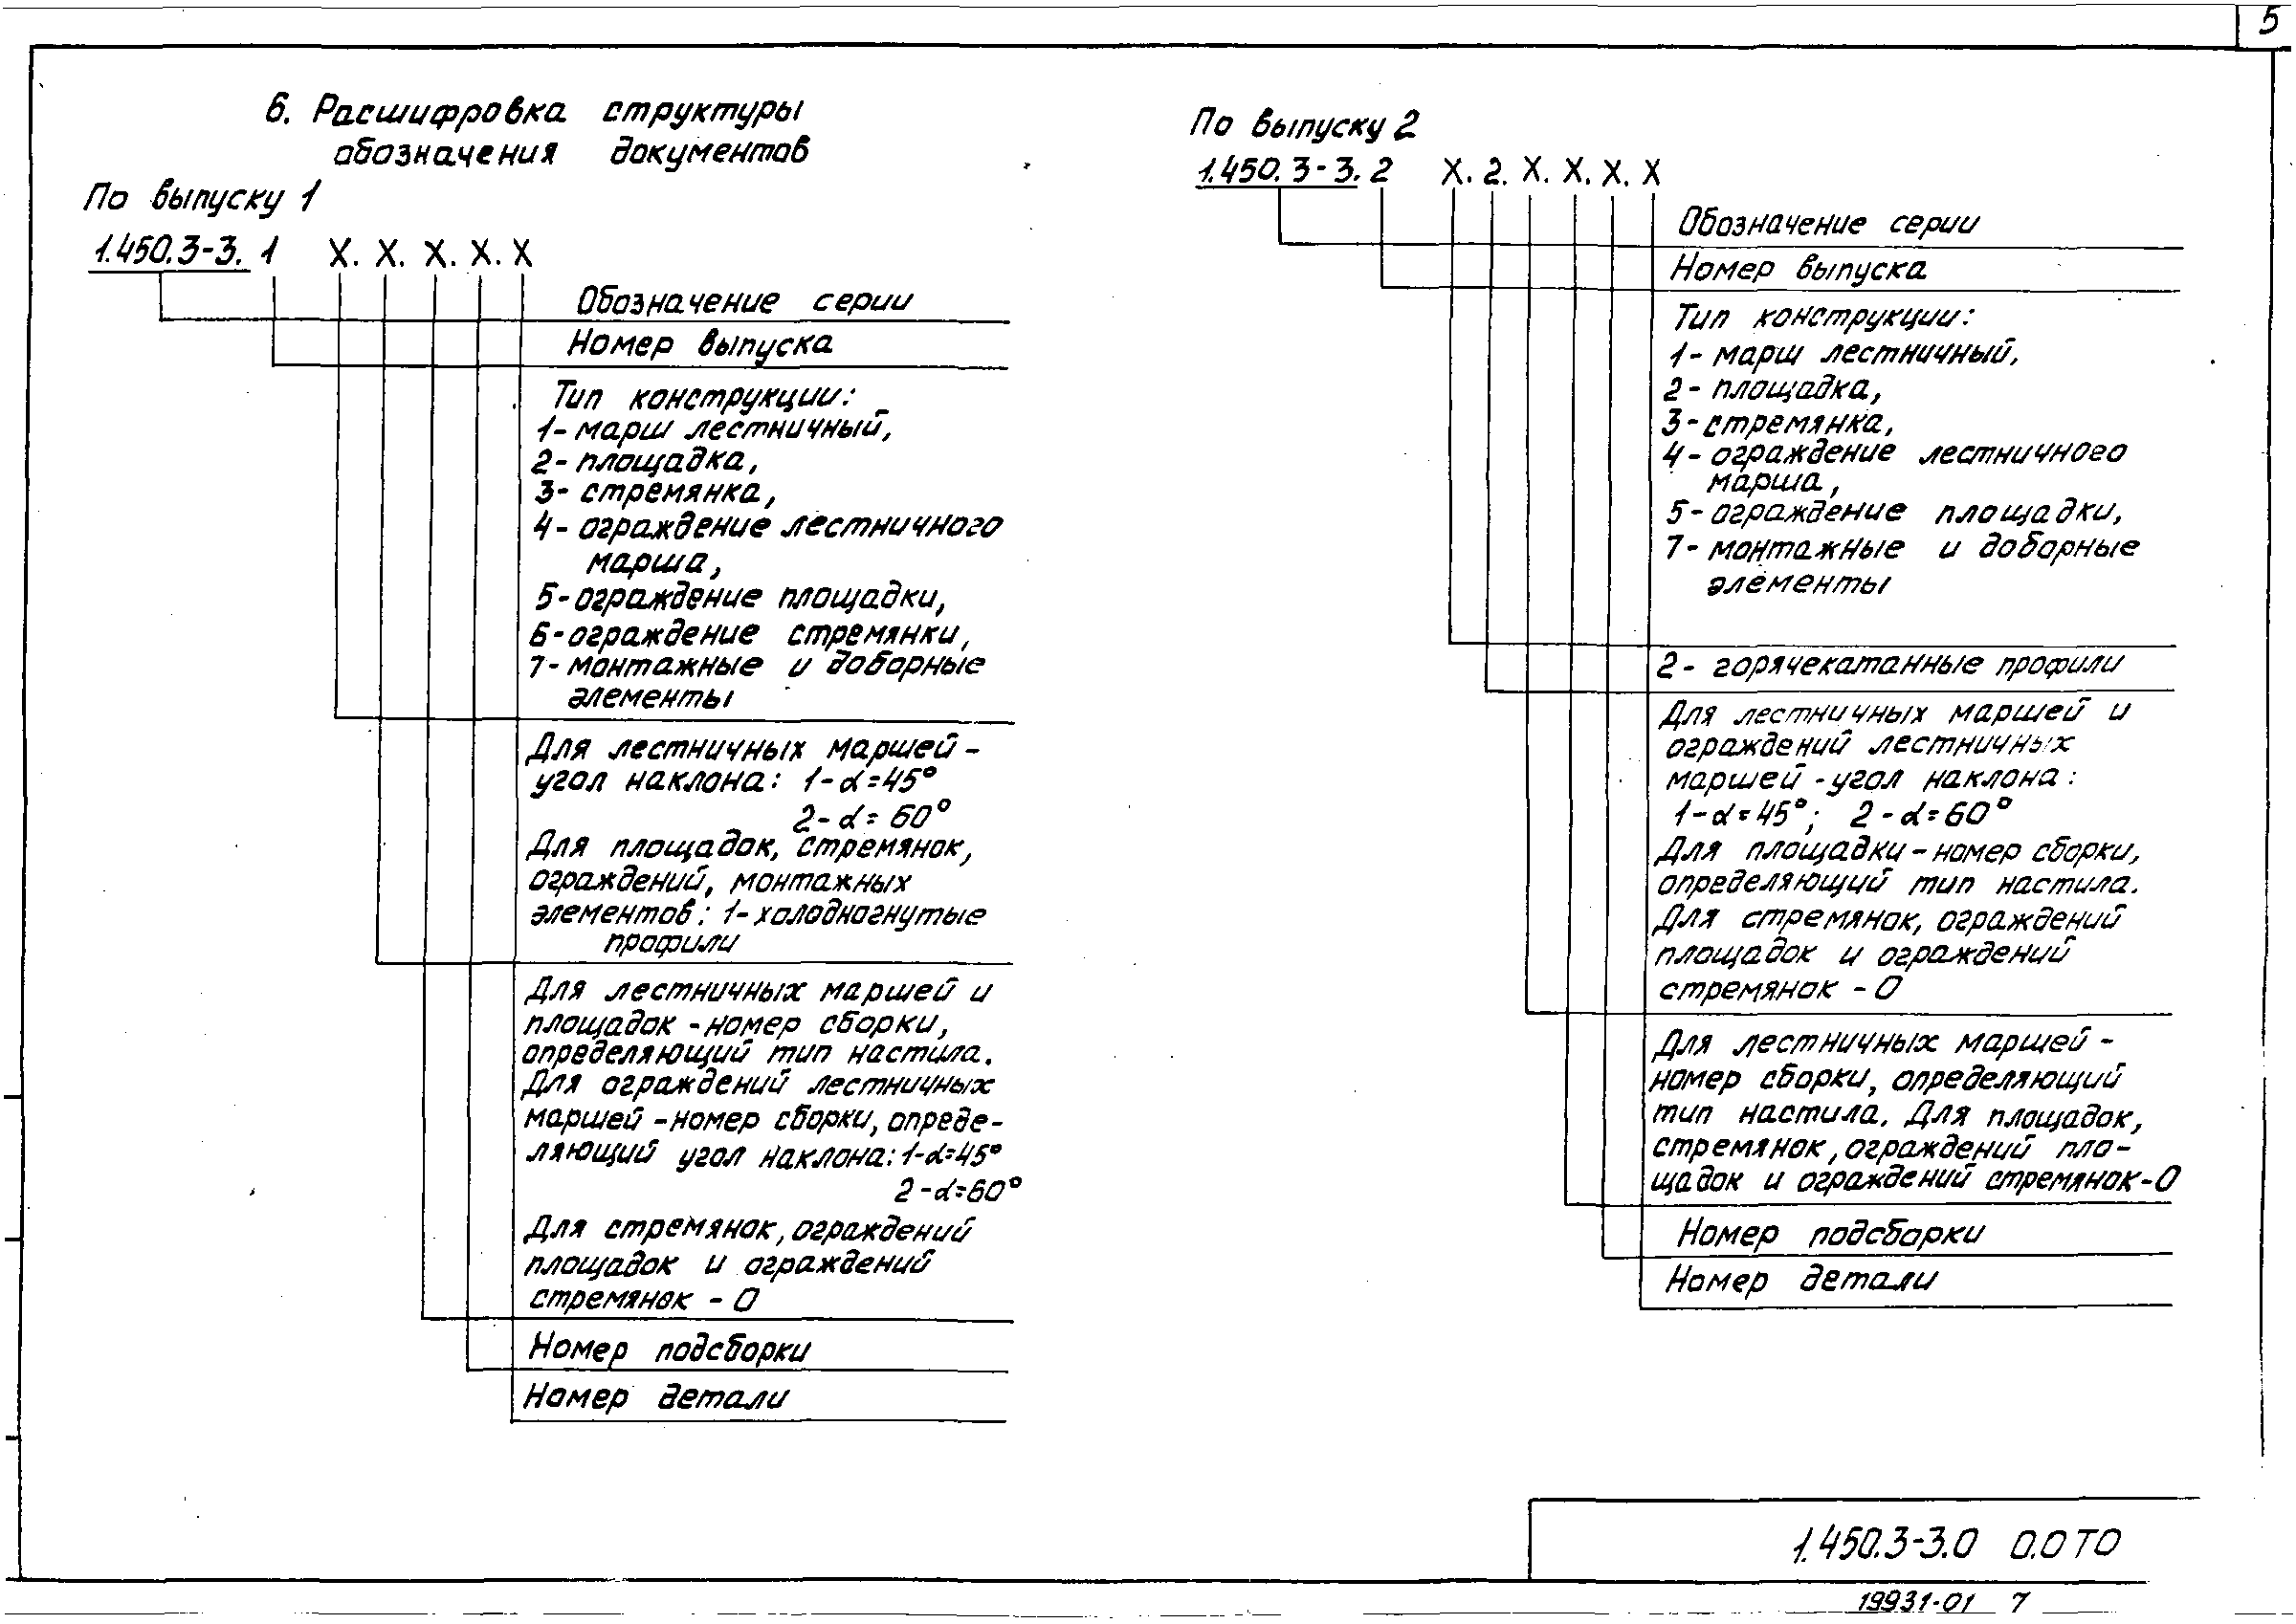 5
6. Расшифровка структуры
обозначения документов
По выпуску 1
1.450.3-3. 1 X. X. X. X. X
Обозначение серии
Номер выпуска
Тип конструкции:
1- марш лестничный,
2- площадка,
3- стремянка,
4- ограждение лестничного
марша,
5- ограждение площадки,
6- ограждение стремянки,
7- монтажные и доборные
элементы
Для лестничных маршей -
угол наклона: 1-α=45°
2-α=60°
Для площадок, стремянок,
ограждений, монтажных
элементов: 1- холодногнутые
профили
Для лестничных маршей и
площадок - номер сборки,
определяющий тип настила.
Для ограждений лестничных
маршей - номер сборки, опреде-
ляющий угол наклона: 1-α=45°
2-α=60°
Для стремянок, ограждений
площадок и ограждений
стремянок - 0
Номер подсборки
Номер детали
По выпуску 2
1.450.3-3. 2 X. 2. X. X. X. X
Обозначение серии
Номер выпуска
Тип конструкции:
1- марш лестничный,
2- площадка,
3- стремянка,
4- ограждение лестничного
марша,
5- ограждение площадки,
7- монтажные и доборные
элементы
2- горячекатанные профили
Для лестничных маршей и
ограждений лестничных
маршей - угол наклона:
1-α=45°; 2-α=60°
Для площадки - номер сборки,
определяющий тип настила.
Для стремянок, ограждений
площадок и ограждений
стремянок - 0
Для лестничных маршей -
номер сборки, определяющий
тип настила. Для площадок,
стремянок, ограждений пло-
щадок и ограждений стремянок-0
Номер подсборки
Номер детали
1.450.3-3.0 0.0 ТО
19931-01 7